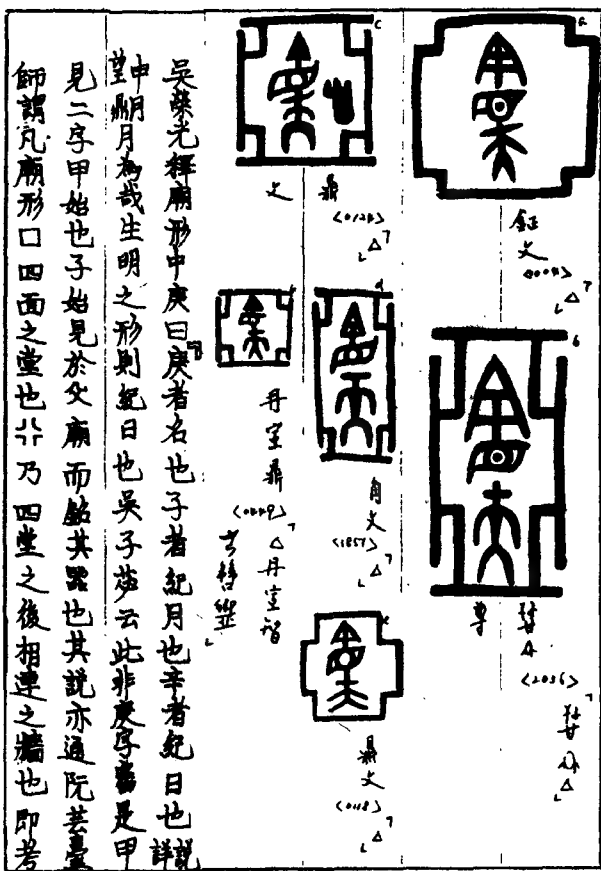 a
鉦文
<0004>
「△」
b
尊
<2036>
c
鼎文
<0120>
「△」
d
角文
<1857>
「△」
丹室鼎
<0449>
「△丹室
e
鼎文
<0118>
「△」
吳榮光釋廟形中庚曰「庚者名也子者紀月也辛者紀日也詳說
望申鼎月為哉生明之形則紀日也吳子苾云此非庚字當是甲
見二字甲始也子始見於父廟而銘其器也其說亦通阮芸臺
師謂凡廟形口四面之堂也乃四堂之後相連之牆也即考